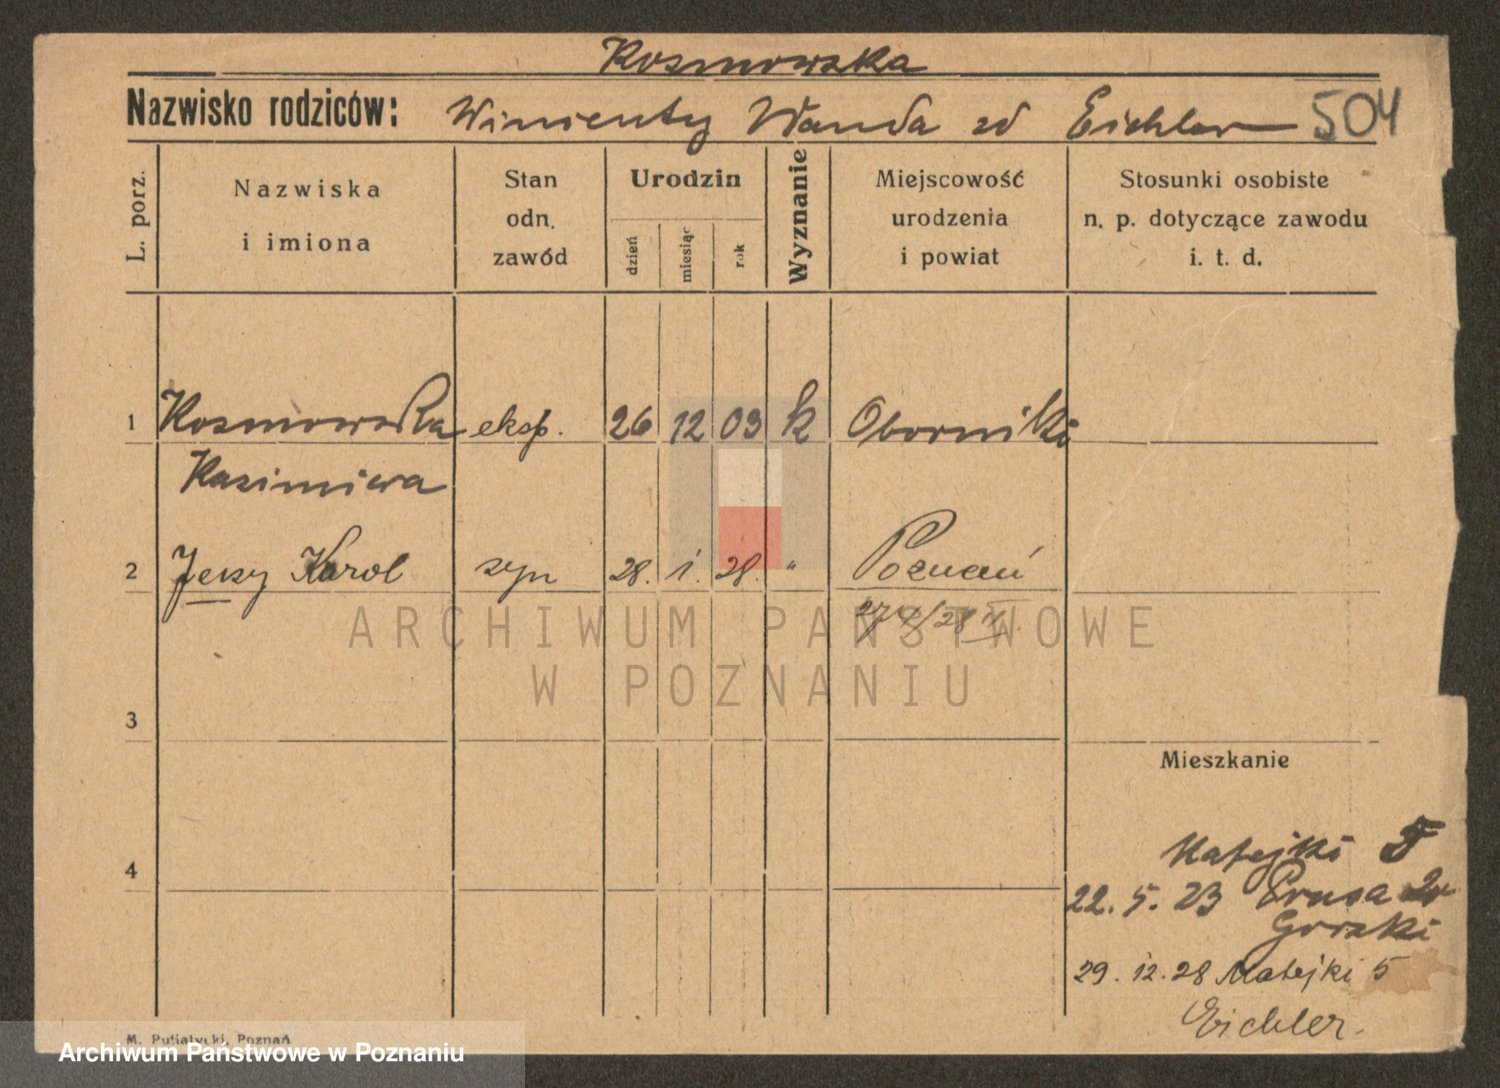 Kosmowska
Nazwisko rodziców: Winienty Wanda zd Eichler 504
L. porz.
Nazwiska i imiona
Stan odn. zawód
Urodzin
dzień
miesiąc
rok
Wyznanie
Miejscowość urodzenia i powiat
Stosunki osobiste n. p. dotyczące zawodu i. t. d.
1 Kosmowska eksp. 26 12 03 k Oborniki
Kazimiera
2 Jerzy Karol syn 28. 1. 28. " Poznań
ARCHIWUM PAŃSTWOWE
W POZNANIU
3
Mieszkanie
Matejki 5
4
22. 5. 23 Prusa
Gorski
29. 12. 28 Matejki 5
Eichler.
M. Putiatycki, Poznań
Archiwum Państwowe w Poznaniu